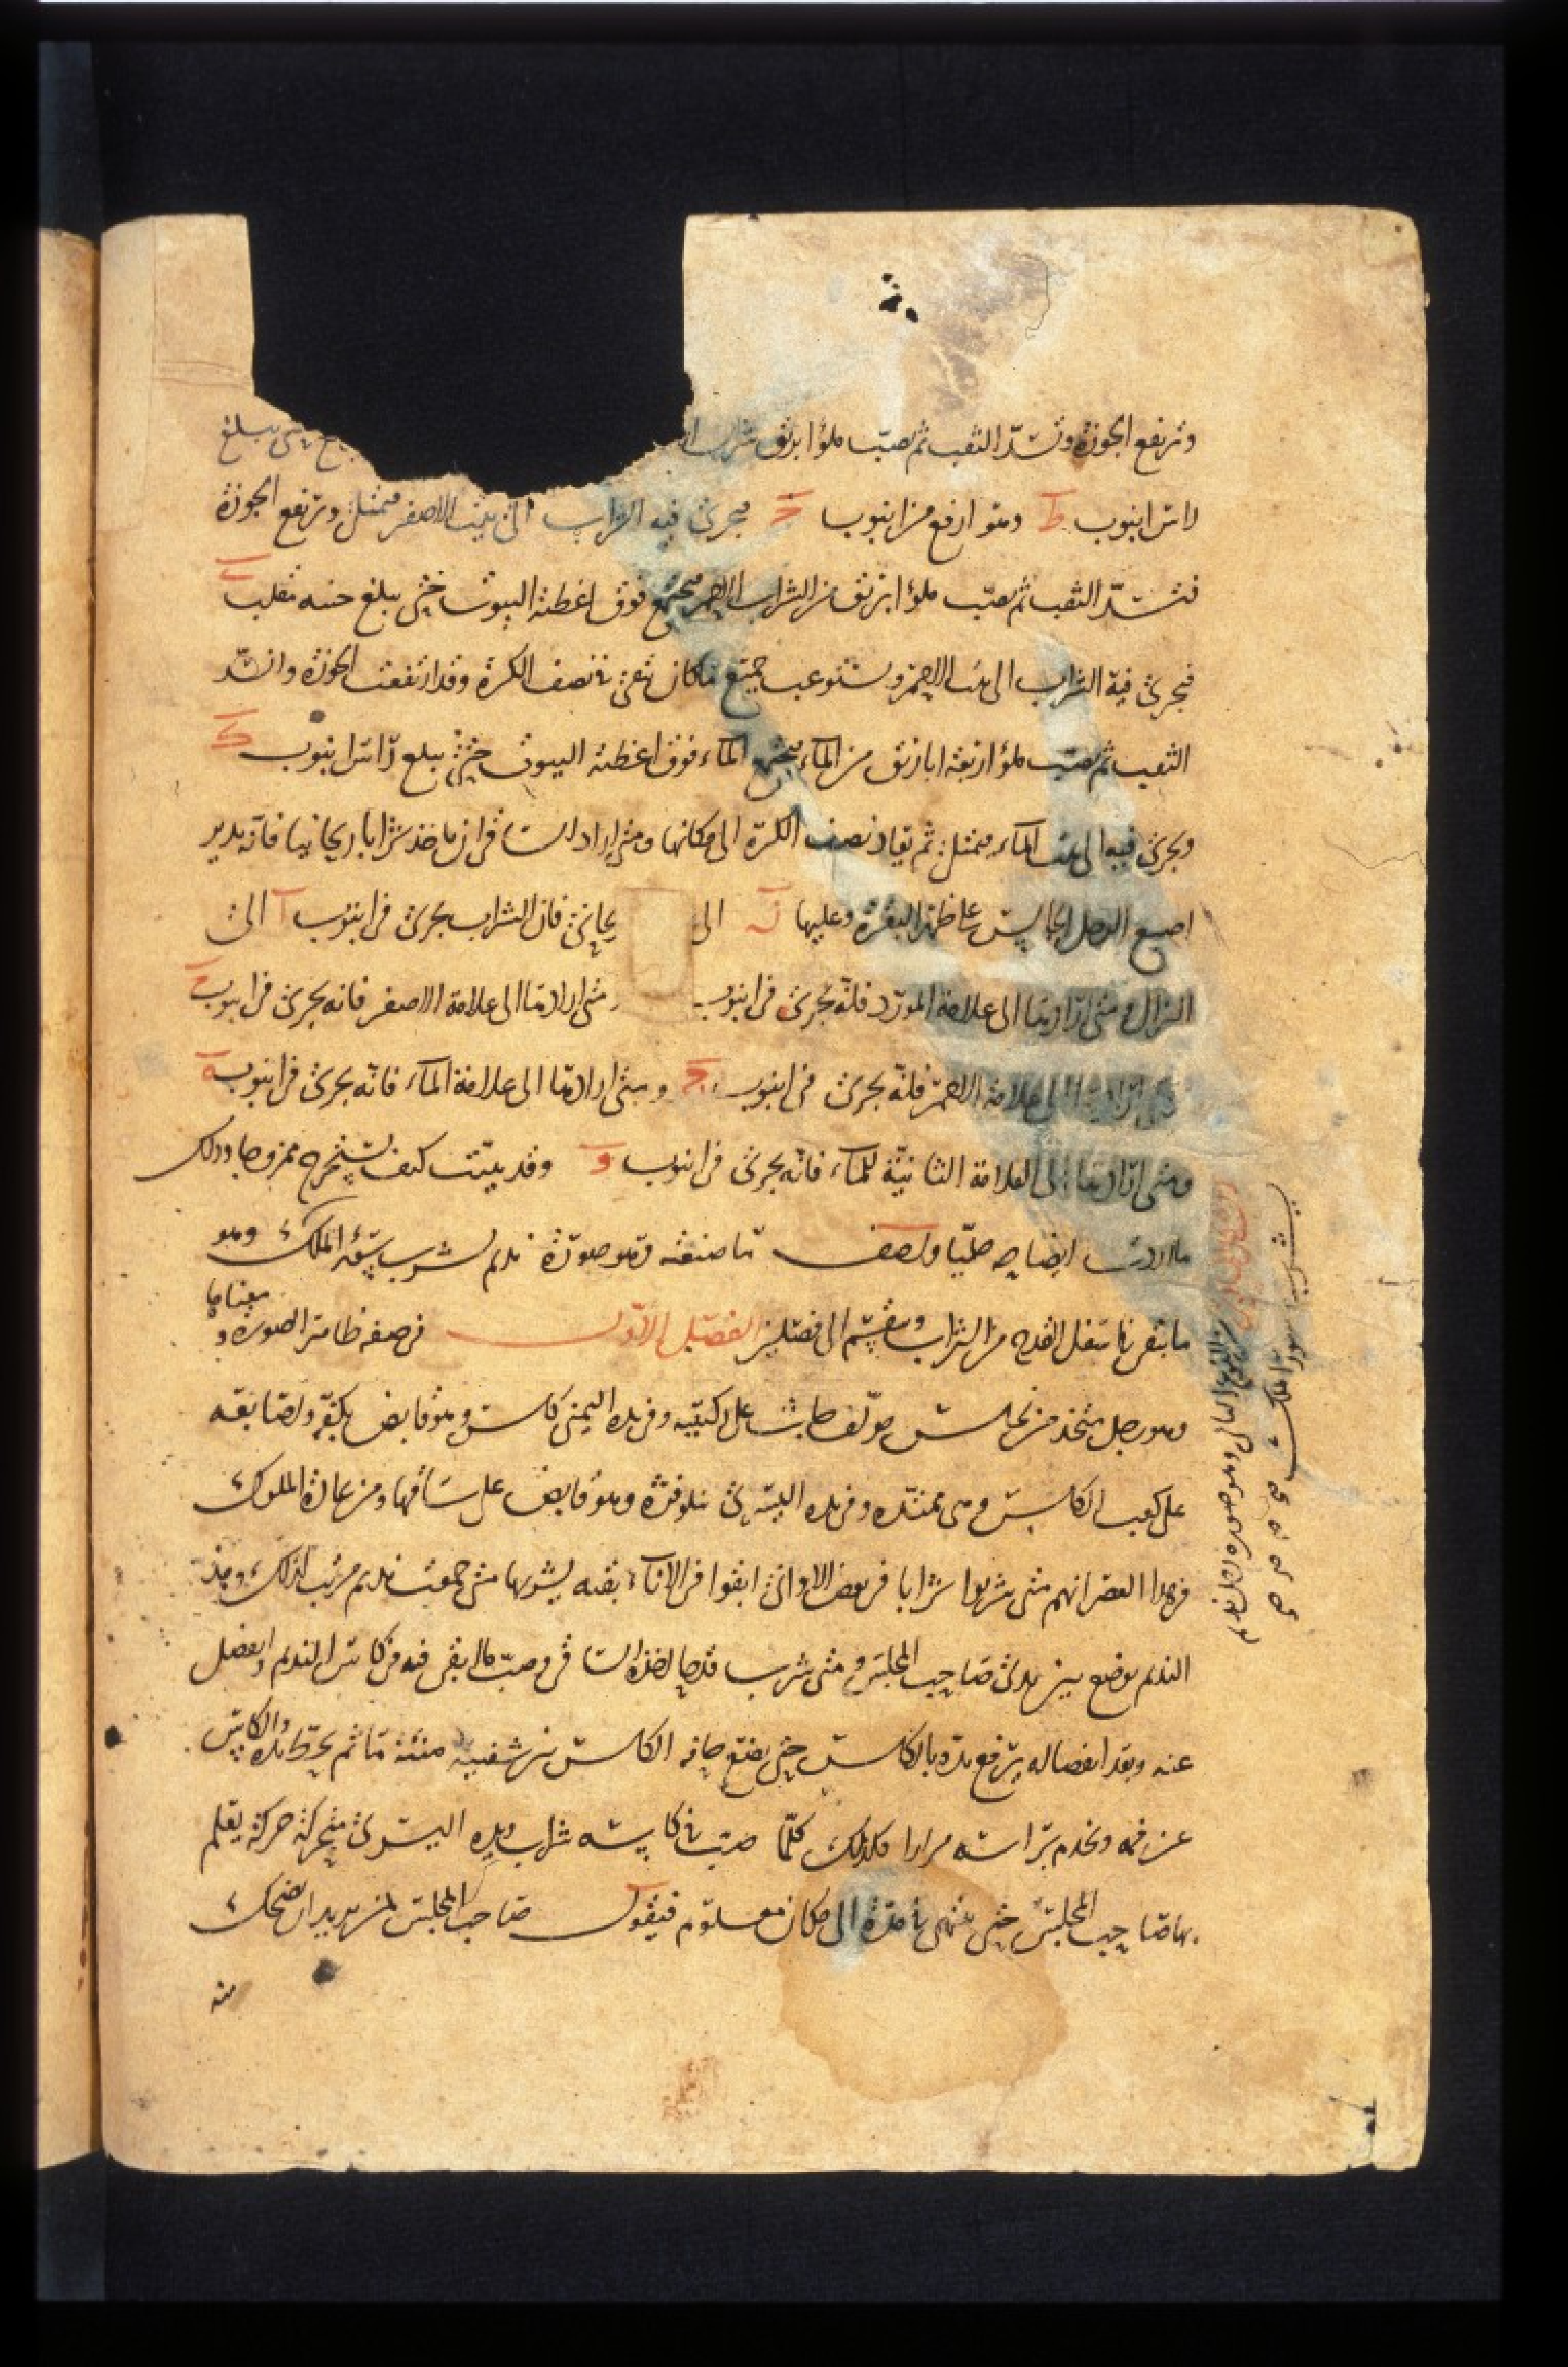 وترتفع الجوزة وتسدّ الثقب ثم يصبّ ملؤ ابريق شراب يبلغ
راس انبوب ط وهو ارفع من انبوب ح فيجرى فيه الشراب الى بيت الاصفر فيمتلئ وترتفع الجوزة
فتسدّ الثقب ثم يصبّ ملؤ ابريق من الشراب الاحمر فيجتمع فوق اغطية البيوت حتى يبلغ
فيجرى فيه الشراب الى بيت الاحمر ويستوعب جميع ما كان بقى فى نصف الكرة وقد ارتفعت الجوزة وانسدّ
الثقب ثم يصب ملؤ اربعة اباريق من الماء فيجتمع الماء فوق اغطية البيوت حتى يبلغ راس انبوب ك
ويجرى فيه الى بيت الماء فيمتلئ ثم يعاد نصف الكرة الى مكانها ومتى اراد الساقى ان ياخذ شرابا ريحانيا فانه يدير
اصبع الرجل الجالس على ظهر البقرة وعليها الى يحانى فان الشراب يجرى فى انبوب ا الى
البزال ومتى ارادها الى علامة المورّد فانه يجرى فى انبوب متى ارادها الى علامة الاصفر فانه يجرى فى انبوب
الى علامة الاحمر فانه يجرى فى انبوب ومتى ارادها الى علامة الماء فانه يجرى فى انبوب ه
ومتى ارادها الى العلامة الثانية للماء فانه يجرى فى انبوب و وقد بيّنت كيف يستخرج ممزوجا وذلك
ما اردت ايضاحه جليّا ولنصف ما صنعته وهو صورة نديم يشرب سؤر الملك وهو
ما بقى فى اسفل القدح من الشراب وينقسم الى فصلين الفصل الاول فى صفة ظاهر الصورة ومعناها
وهو رجل متخذ من نحاس مؤلف جاث على ركبتيه وفى يده اليمنى كاس وهو قابض بكفه واصابعه
على كعب الكاس وهى ممتدة وفى يده اليسرى نيلوفرة وهو قابض على ساقها ومن عادة الملوك
فى هذا العصر انهم متى شربوا شرابا فى بعض الاوانى ابقوا فى الاناء بقية يشربها متى جمعت نديم مرتب لذلك وهذا
النديم يوضع بين يدى صاحب المجلس ومتى شرب قدحا اخذه الساقى وصبّ ما ابقى فيه فى كاس النديم وانفصل
عنه وبعد انفصاله يرفع يده بالكاس حتى يضع حافة الكاس بين شفتيه هنيئة ما ثم يحط يده والكاس
عن فمه ويخدم براسه مرارا وكذلك كلّما صب فى كاسه شراب ويده اليسرى متحركة حركة يعلم
بها صاحب المجلس حتى ينتهى بامره الى مكان معلوم فيقول صاحب المجلس لمن يريد ان يضحك
منه
من النوع الثانى وهو صورة رجل نديم
يشرب سؤر الملك